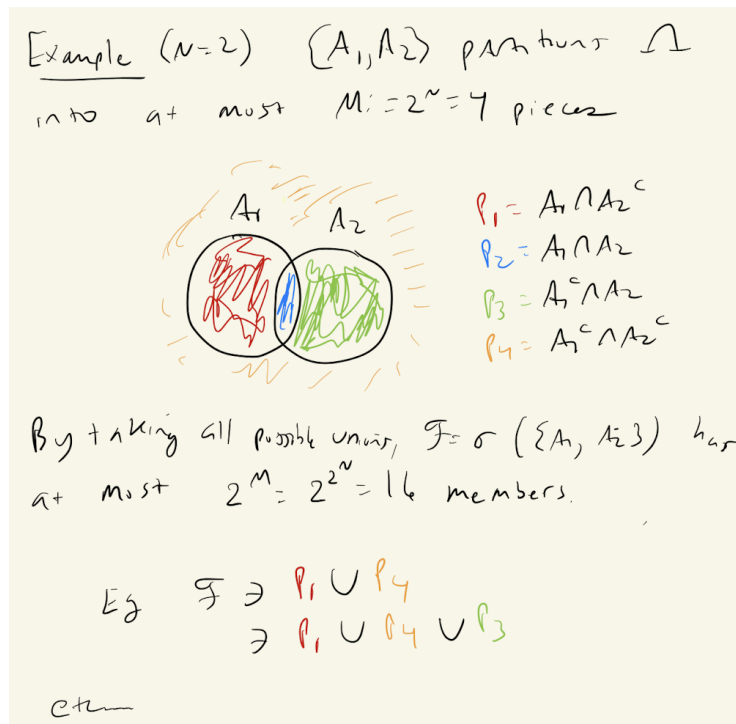 Example (N=2) {A₁, A₂} partitions Ω
into at most M:=2^N=4 pieces
A₁ A₂
P₁= A₁∩A₂^c
P₂= A₁∩A₂
P₃= A₁^c∩A₂
P₄= A₁^c∩A₂^c
By taking all possible unions, ℱ=σ({A₁, A₂}) has
at most 2^M=2^2^N=16 members.
Eg ℱ∋ P₁∪P₄
∋ P₁∪P₄∪P₃